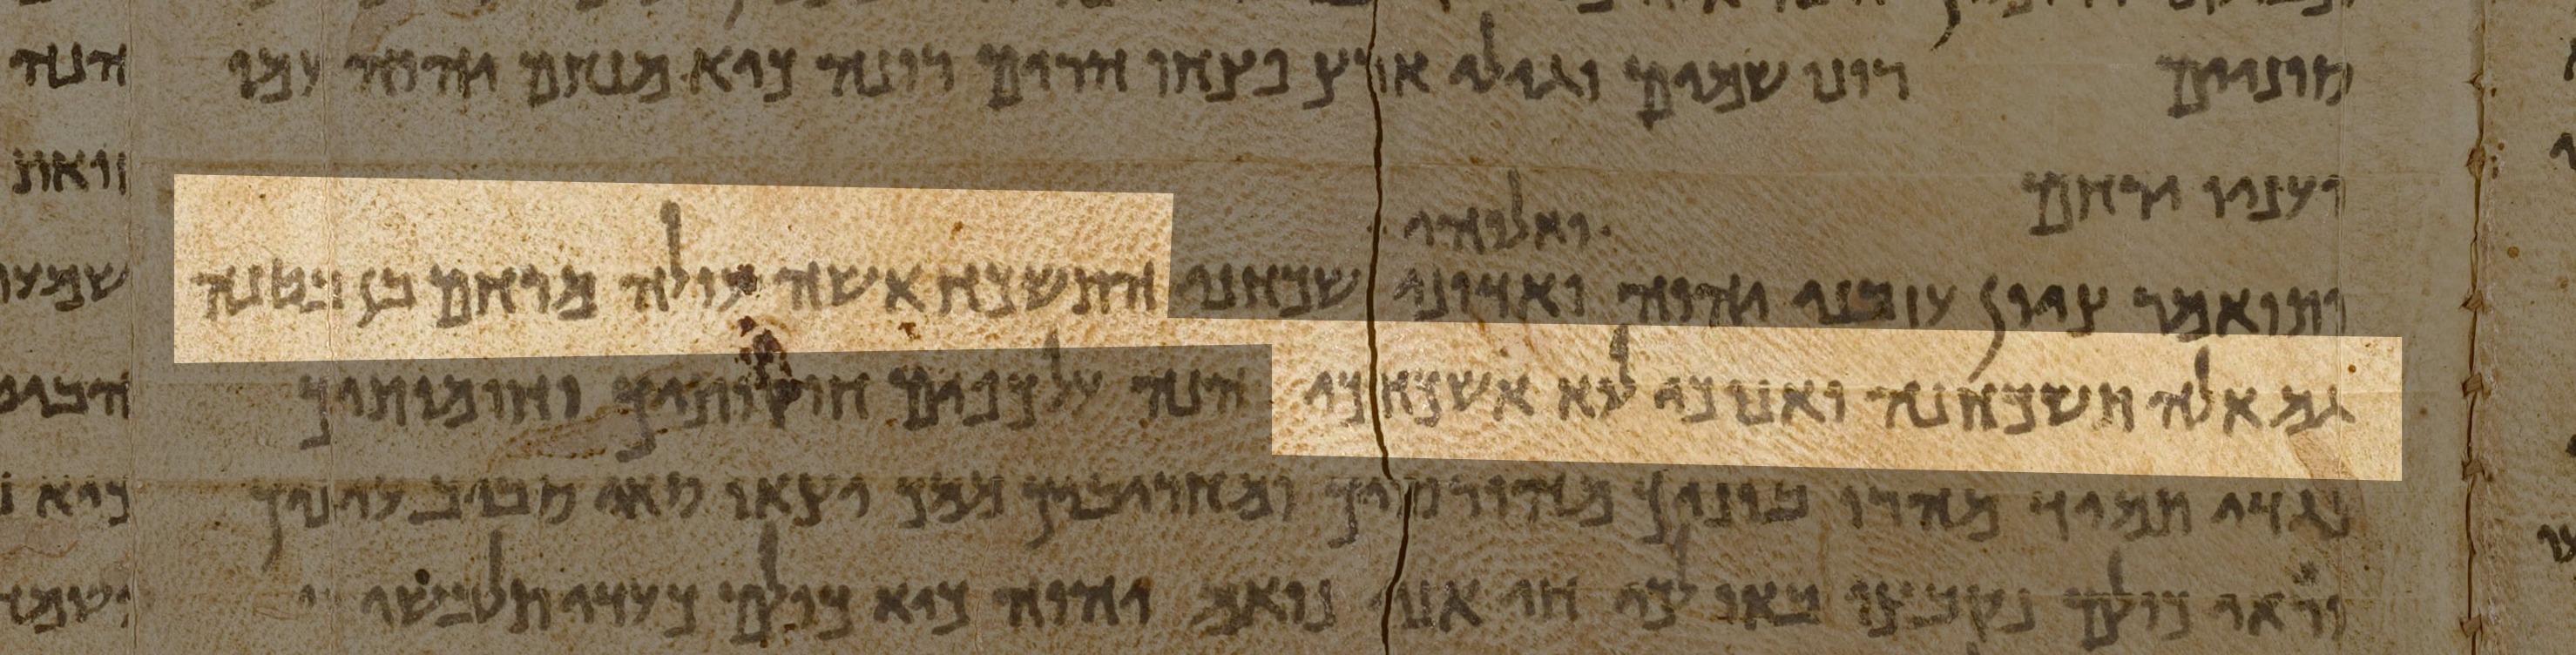 סוניים רונו שמים וגילי ארץ פצחו הרים רונה כיא מנחם יהוה עמו
ועניו ירחם
ואלוהי
ותואמר ציון עזבני יהוה ואדוני שכחני התשכח אשה עולה מרחם בן בטנה
גם אלה תשכחנה ואנוכי לוא אשכחכי הנה על כפים חוקותיך וחומותיך
נגדי תמיד מהרו בוניך מהורסיך ומחריביך ממך יצאו שאי סביב עיניך
וראי כולם נקבצו באו לך חי אני נואם יהוה כיא כולם כעדי תלבשי